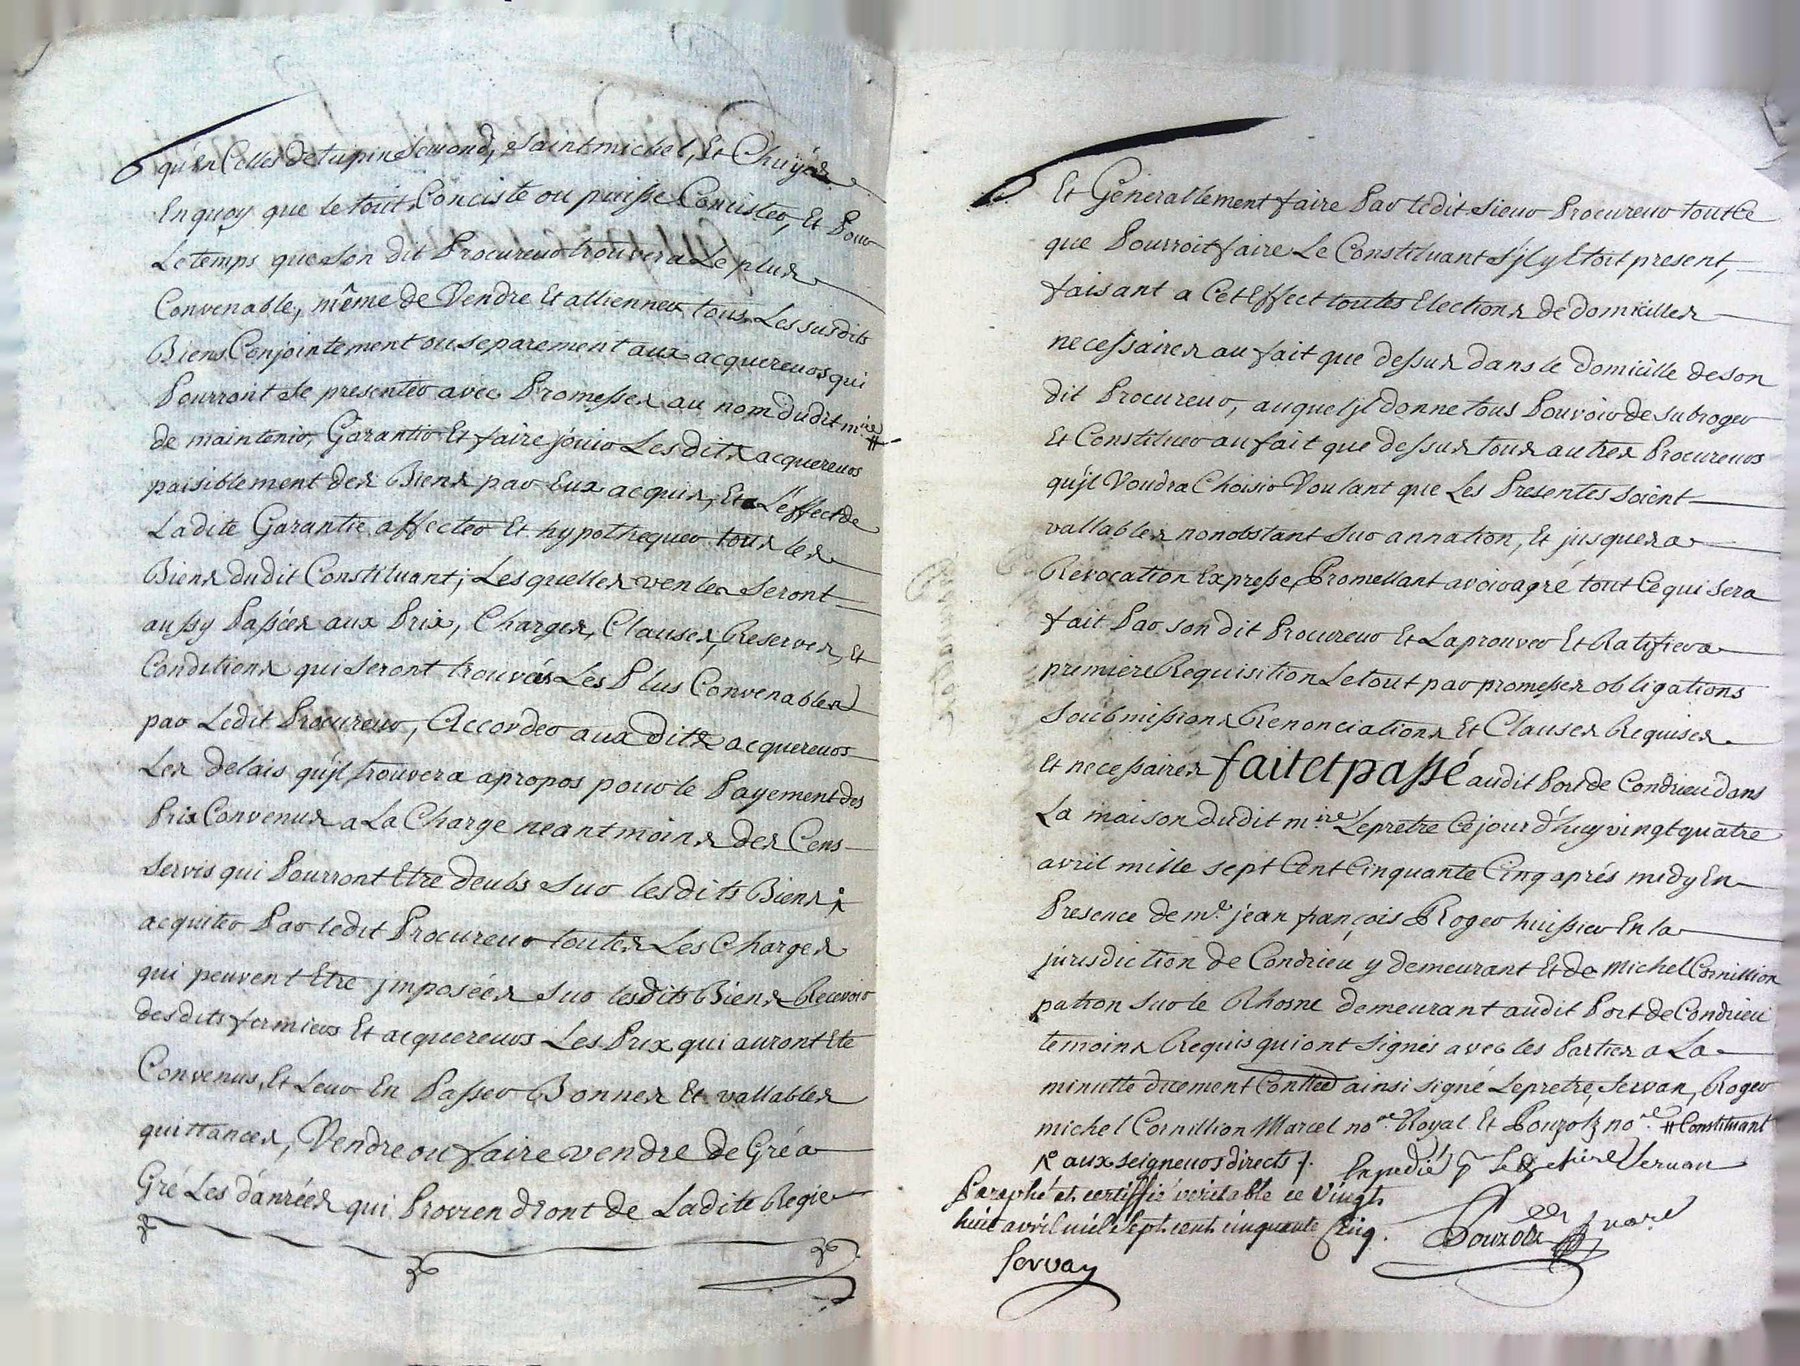 qu'en Celles de tupin Semond, Saint michel, Et Chuyés
En quoy que le tout Conciste ou puisse Concister, Et Pour
Le temps que Son dit Procureur trouvera Le plus
Convenable, même de Vendre Et allienner tous Les susdits
Biens Conjointement ou separement aux acquereurs qui
Pourront Se presenter avec Promesses au nom dudit m.ire #
de maintenir, Garantir Et faire jouir Les dits acquereurs
paisiblement des Biens par Eux acquis, Et a L'effect de
La dite Garantie affecter Et hypothequer tous les
Biens du dit Constituant; Lesquelles ventes Seront
aussy Passées aux Prix, Charges, Clauses, Reserves, Et
Conditions qui Seront trouvés Les Plus Convenables
par Ledit Procureur, Accorder aux Dits acquereurs
Les delais qu'jl trouvera apropos pour le Payement des
Prix Convenus a La Charge neantmoins des Cens
Servis qui Pourront Etre deubs Sur les dits Biens
acquiter Par ledit Procureur toutes Les Charges
qui peuvent Etre jmposées Sur lesdits Biens Recevoir
des dits fermiers Et acquereurs Les Prix qui auront Eté
Convenus, Et Leur En Passer Bonnes Et vallables
quittances, Vendre ou faire vendre de Gré a
Gré Les danrées qui Provien dront de La dite Regie
Et Generallement faire Par ledit Sieur Procureur tout Ce
que Pourroit faire Le Constituant S'jl y Etoit present,
faisant a Cet Effect toutes Elections de domicilles
necessaires au fait que dessus dans le Domicille de son
dit Procureur, auquel jl donne tous Pouvoir de subroger
Et Constituer au fait que dessus tous autres Procureurs
qu'jl Voudra Choisir Voulant que Les Presentes soient
vallables nonobstant Sur annation, Et jusques a
Revocation Expresse, Promettant avoir agré tout Ce qui sera
fait Par son dit Procureur Et Laprouver Et Ratifier a
premiere Requisition Le tout par promesses obligations
Soubmissions Renonciations Et Clauses Requises
Et necessaires fait et passé audit Port de Condrieu dans
La maison dudit m.ire Lepretre Ce jour d'huy vingt quatre
avril mille sept Cent Cinquante Cinq aprés midy En
Presence de m.e jean françois Roger huissier En la
jurisdiction de Condrieu y demeurant Et de Michel Cornillion
patron Sur le Rhosne demeurant audit Port de Condrieu
temoins Requis qui ont Signés avec les Parties a La
minutte duement Conttée ainsi signé Lepretre, Servan, Roger
michel Cornillion Marcel no.re Royal Et Pouzolz no.re # Constituant
aux seigneurs directs /. Expedié Servan
Paraphé et certiffié veritable ce vingt
huit avril mil sept cent cinquante Cinq.
Pouzolz
Servan